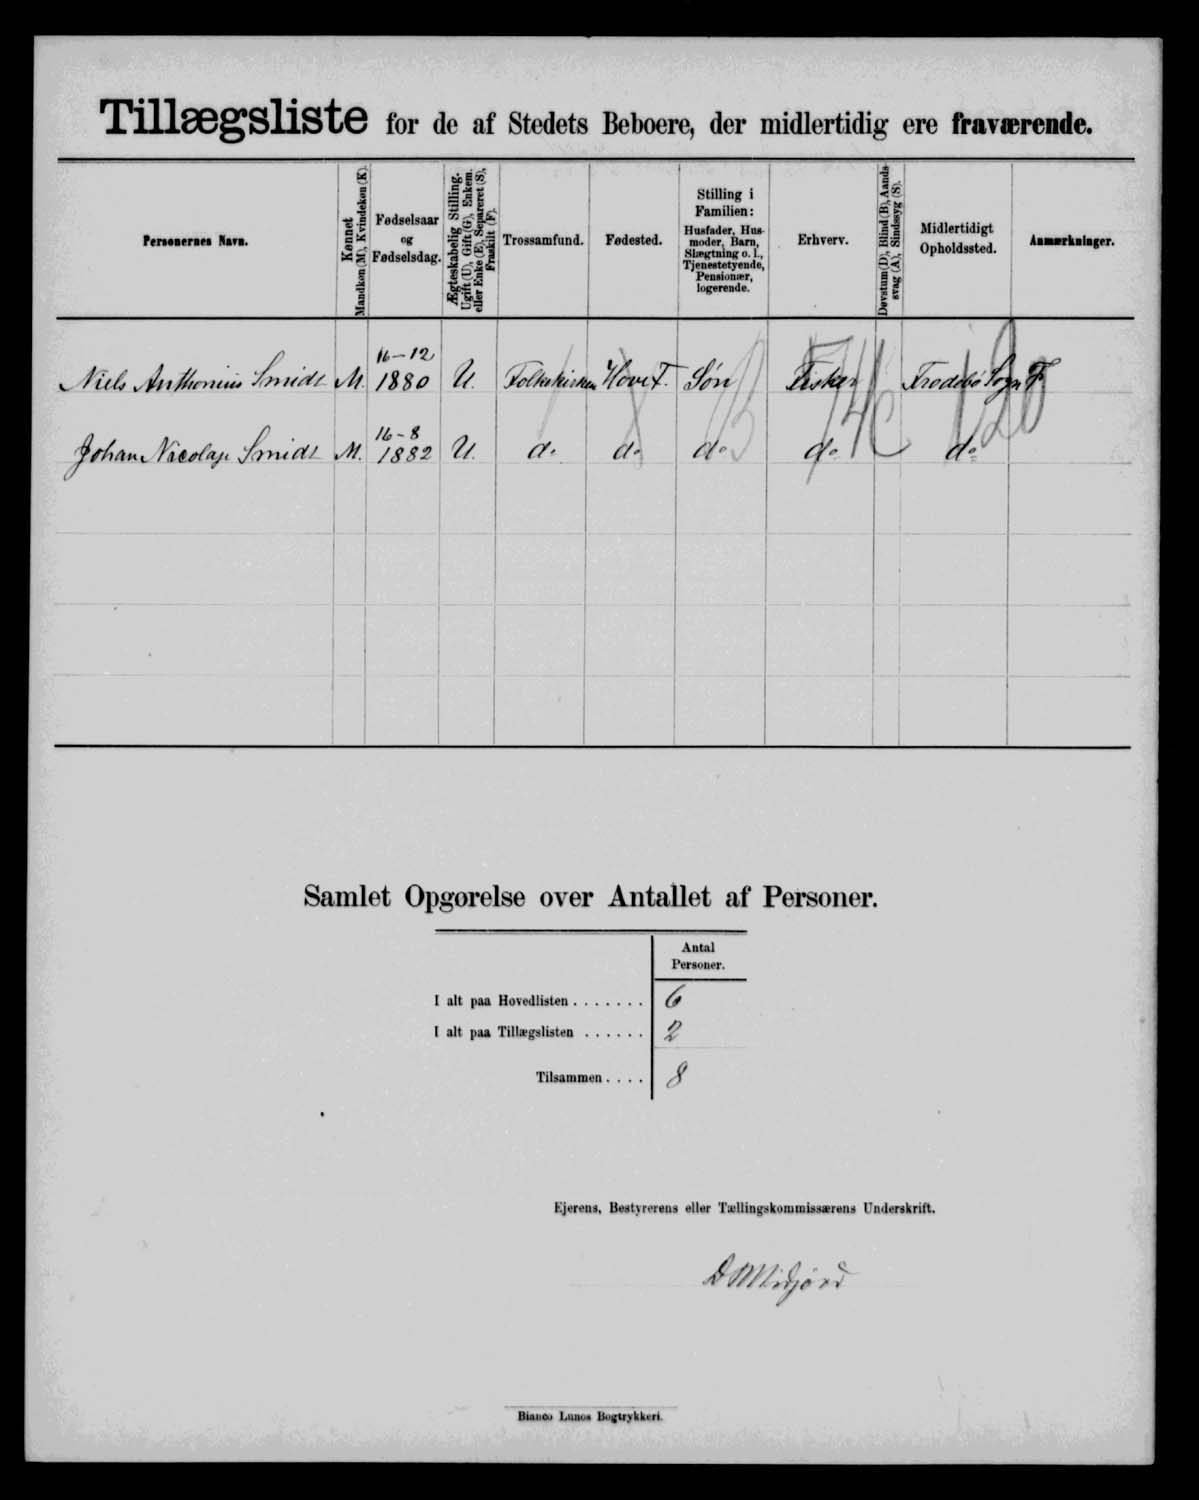 Tillægsliste for de af Stedets Beboere, der midlertidig ere fraværende.
Personernes Navn.
Kønnet
Mandkøn (M), Kvindekøn (K).
Fødselsaar
og
Fødselsdag.
Ægteskabelig Stilling.
Ugift (U), Gift (G), Enkem.
eller Enke (E), Separeret (S),
Fraskilt (F).
Trossamfund.
Fødested.
Stilling i
Familien:
Husfader, Hus-
moder, Barn,
Slægtning o. l.,
Tjenestetyende,
Pensionær,
logerende.
Erhverv.
Døvstum (D), Blind (B), Aands-
svag (A), Sindssyg (S).
Midlertidigt
Opholdssted.
Anmærkninger.
Niels Anthonius Smidt M. 16-12 1880 U. Folkekirken Hove F. Søn Fisker Frodebø Sogn F.
Johan Nicolaj Smidt M. 16-8 1882 U. do do do do do
Samlet Opgørelse over Antallet af Personer.
Antal
Personer.
I alt paa Hovedlisten . . . . . . . 6
I alt paa Tillægslisten . . . . . . 2
Tilsammen . . . . 8
Ejerens, Bestyrerens eller Tællingskommissærens Underskrift.
D Midjord
Bianco Lunos Bogtrykkeri.